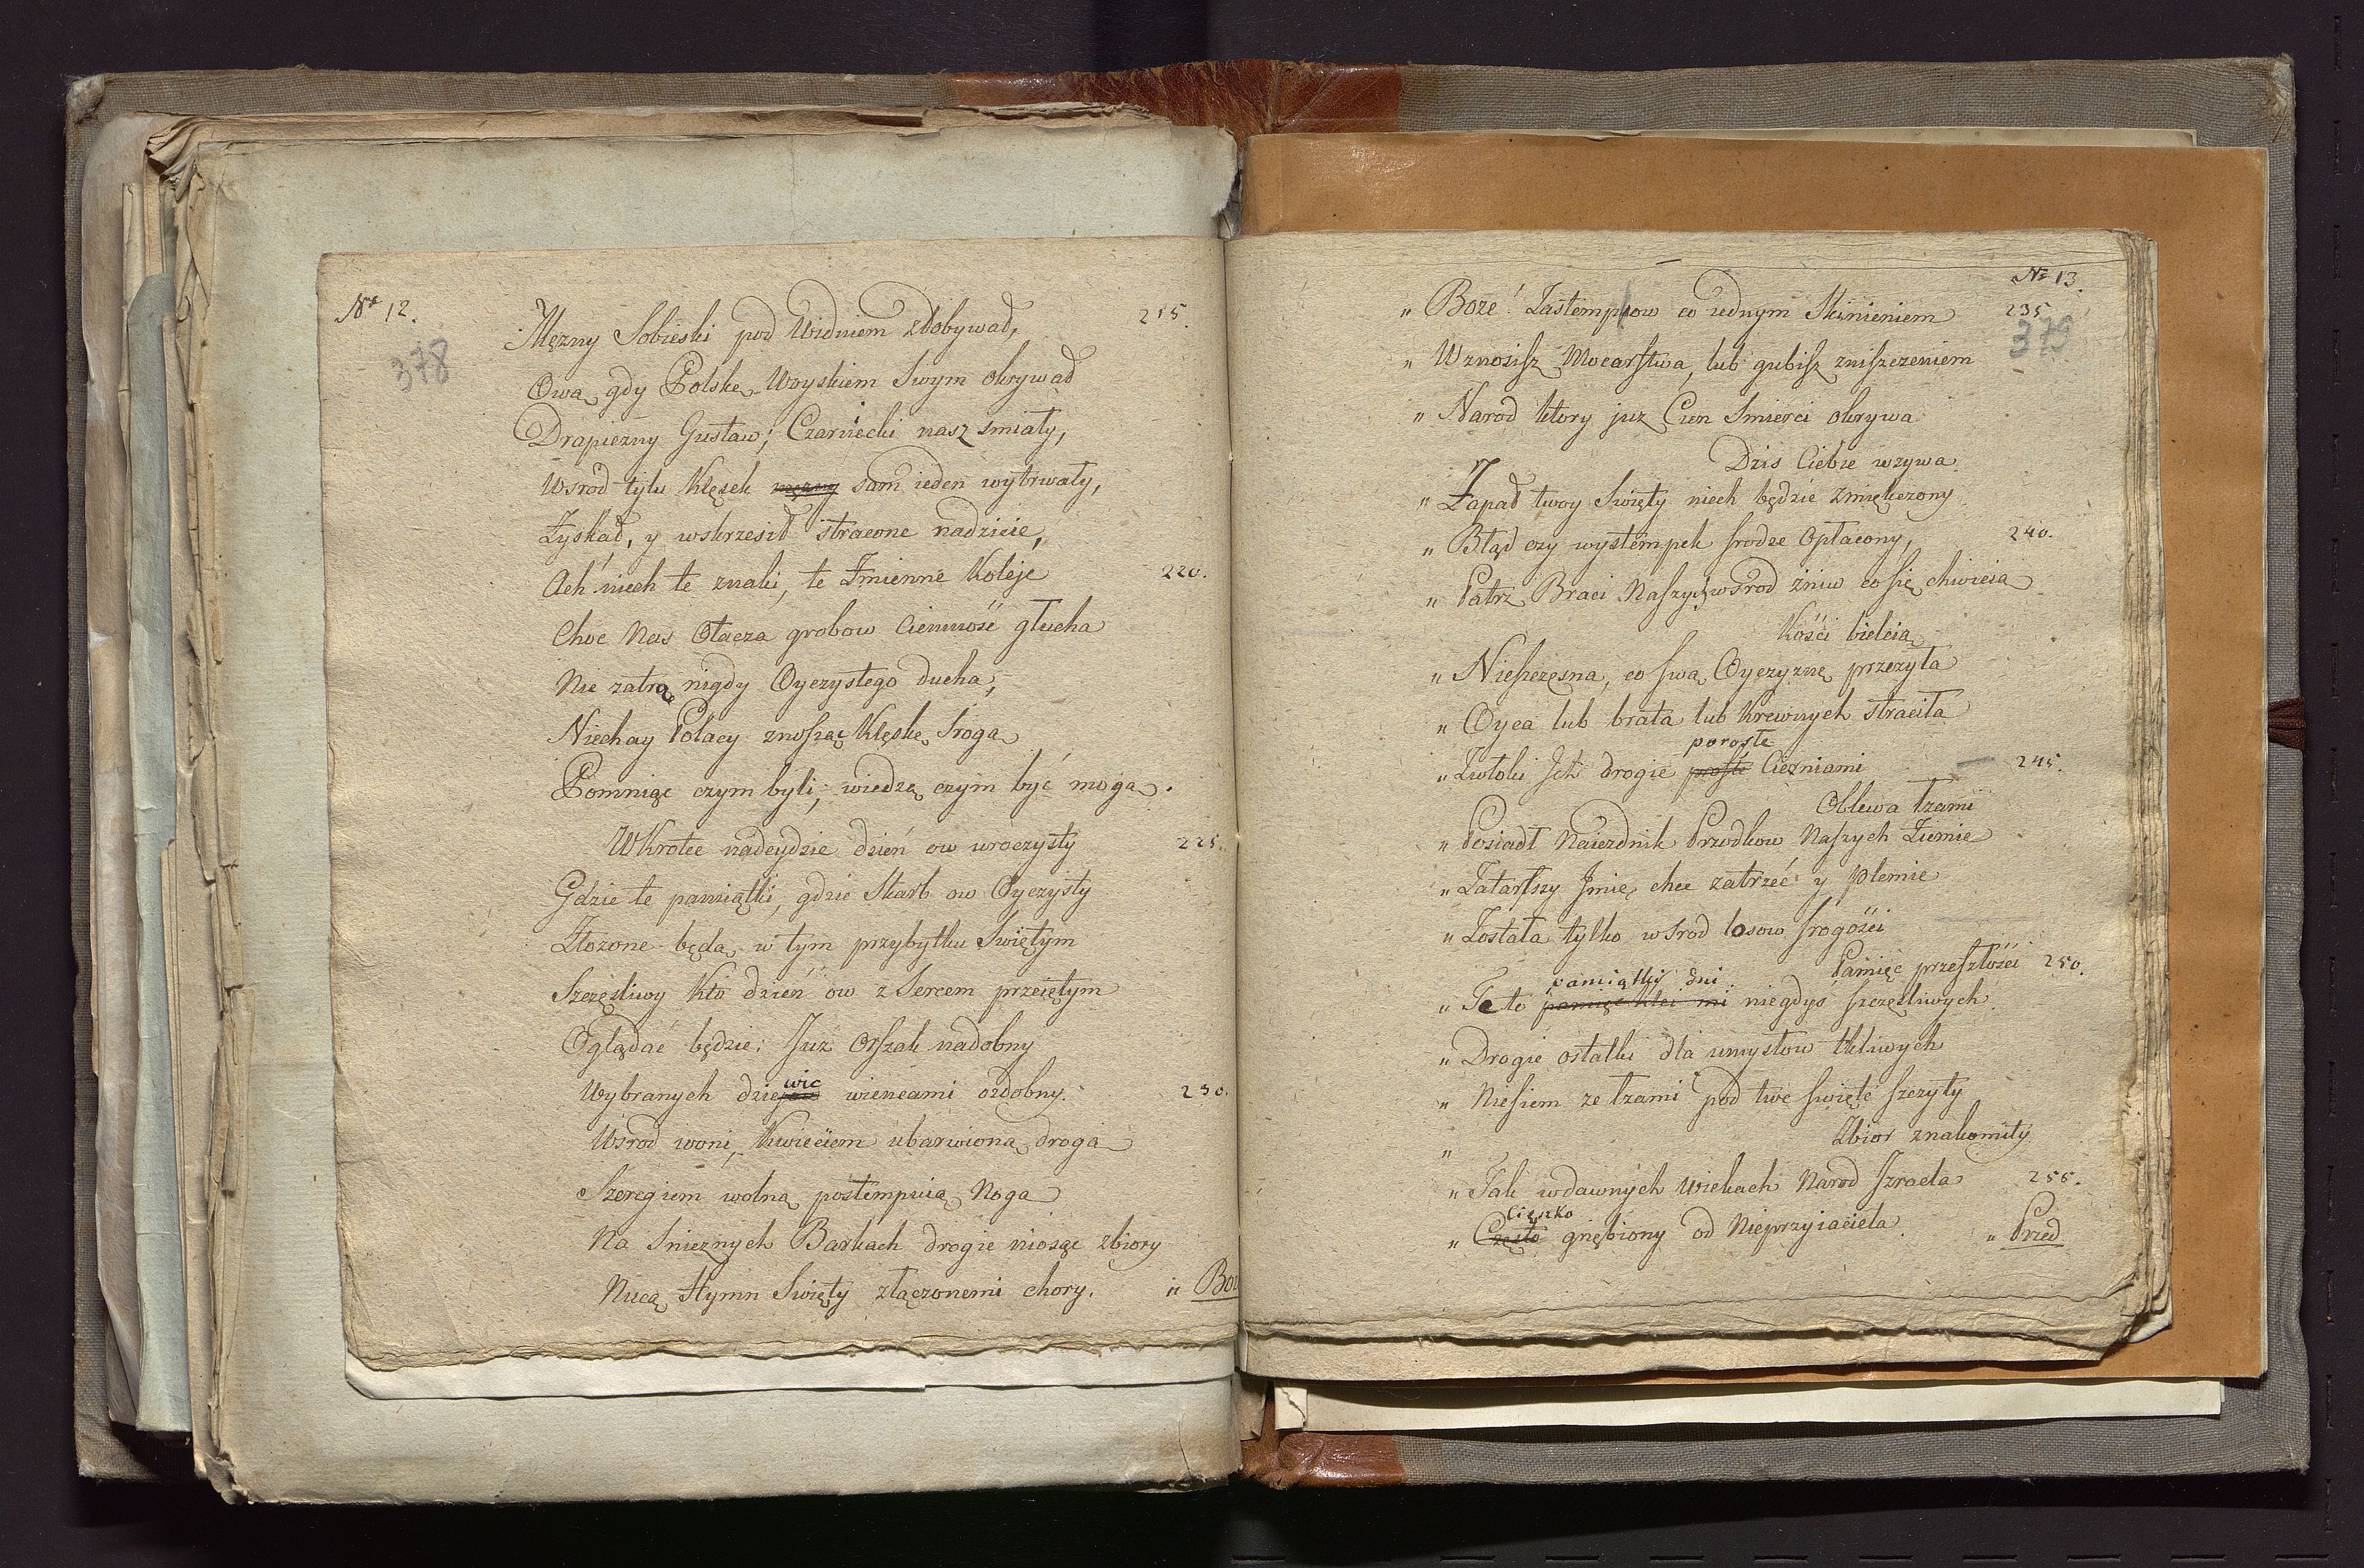 Nº 12.
378
Mężny Sobieski pod Widniem zdobywał, 215.
Ową, gdy Polskę Woyskiem Swym okrywał
Drapiezny Gustaw; Czarniecki nasz smiały,
Wsrod tylu klęsek mężny sam ieden wytrwały,
Zyskał, y wskrzesił stracone nadzieie,
Ach niech te znaki, te Zmienne Koleje 220.
Choc Nas Otacza grobow Ciemność głucha
Nie zatrą nigdy Oyczystego ducha,
Niechay Polacy znosząc klęskę Srogą
Pomniąc czym byli; wiedzą czym być mogą.
WKrotce nadeydzie dzień ow uroczysty 225.
Gdzie te pamiątki, gdzie Skarb ow Oyczysty
Złozone będą, w tym przybytku Swiętym
Szczęsliwy kto dzień ow z Sercem przeiętym
Oglądać będzie: Juz Orszak nadobny
Wybranych dziewic wiencami ozdobny. 230.
Wsrod woni, Kwieciem ubarwioną drogą
Szeregiem wolną postempuią Nogą
Na Snieznych Barkach drogie niosąc zbiory
Nucą Hymn Swięty złączonemi chory.
" Boz
Nº 13.
" Boze! Zastempow co iednym Skinieniem 235
379
" Wznosisz Mocarstwa, lub gubisz zniszczeniem
" Narod ktory juz Cien Smierci okrywa
Dzis Ciebie wzywa
" Zapał twoy Swięty niech będzie zmiękczony
" Błąd czy wystempek srodze Opłacony, 240.
" Patrz Braci Naszych wsrod źniw co się chwieią
Kości bieleią
" Nieszczęsna, co swą Oyczyznę przezyła
" Oyca lub brata lub Krewnych straciła
porosłe
" Zwłoki Ich drogie prosłe Cierniami 245.
Oblewa łzami
" Posiadł Naiezdnik Przodkow Naszych Ziemie
" Zatarłszy Imię, chce zatrzeć y plemie
" Została tylko wsrod losow srogości
Pamięc przeszłości 250.
pamiątki dni
" Te to niegdys szczęsliwych
" Drogie ostatki dla umysłow tkliwych
" Niesiem ze łzami pod twe swięte szczyty
Zbior znakomity
"
" Tak wdawnych Wiekach Narod Izraela 255.
Cięszko
" Często gnębiony od Nieprzyiaciela
" Przed